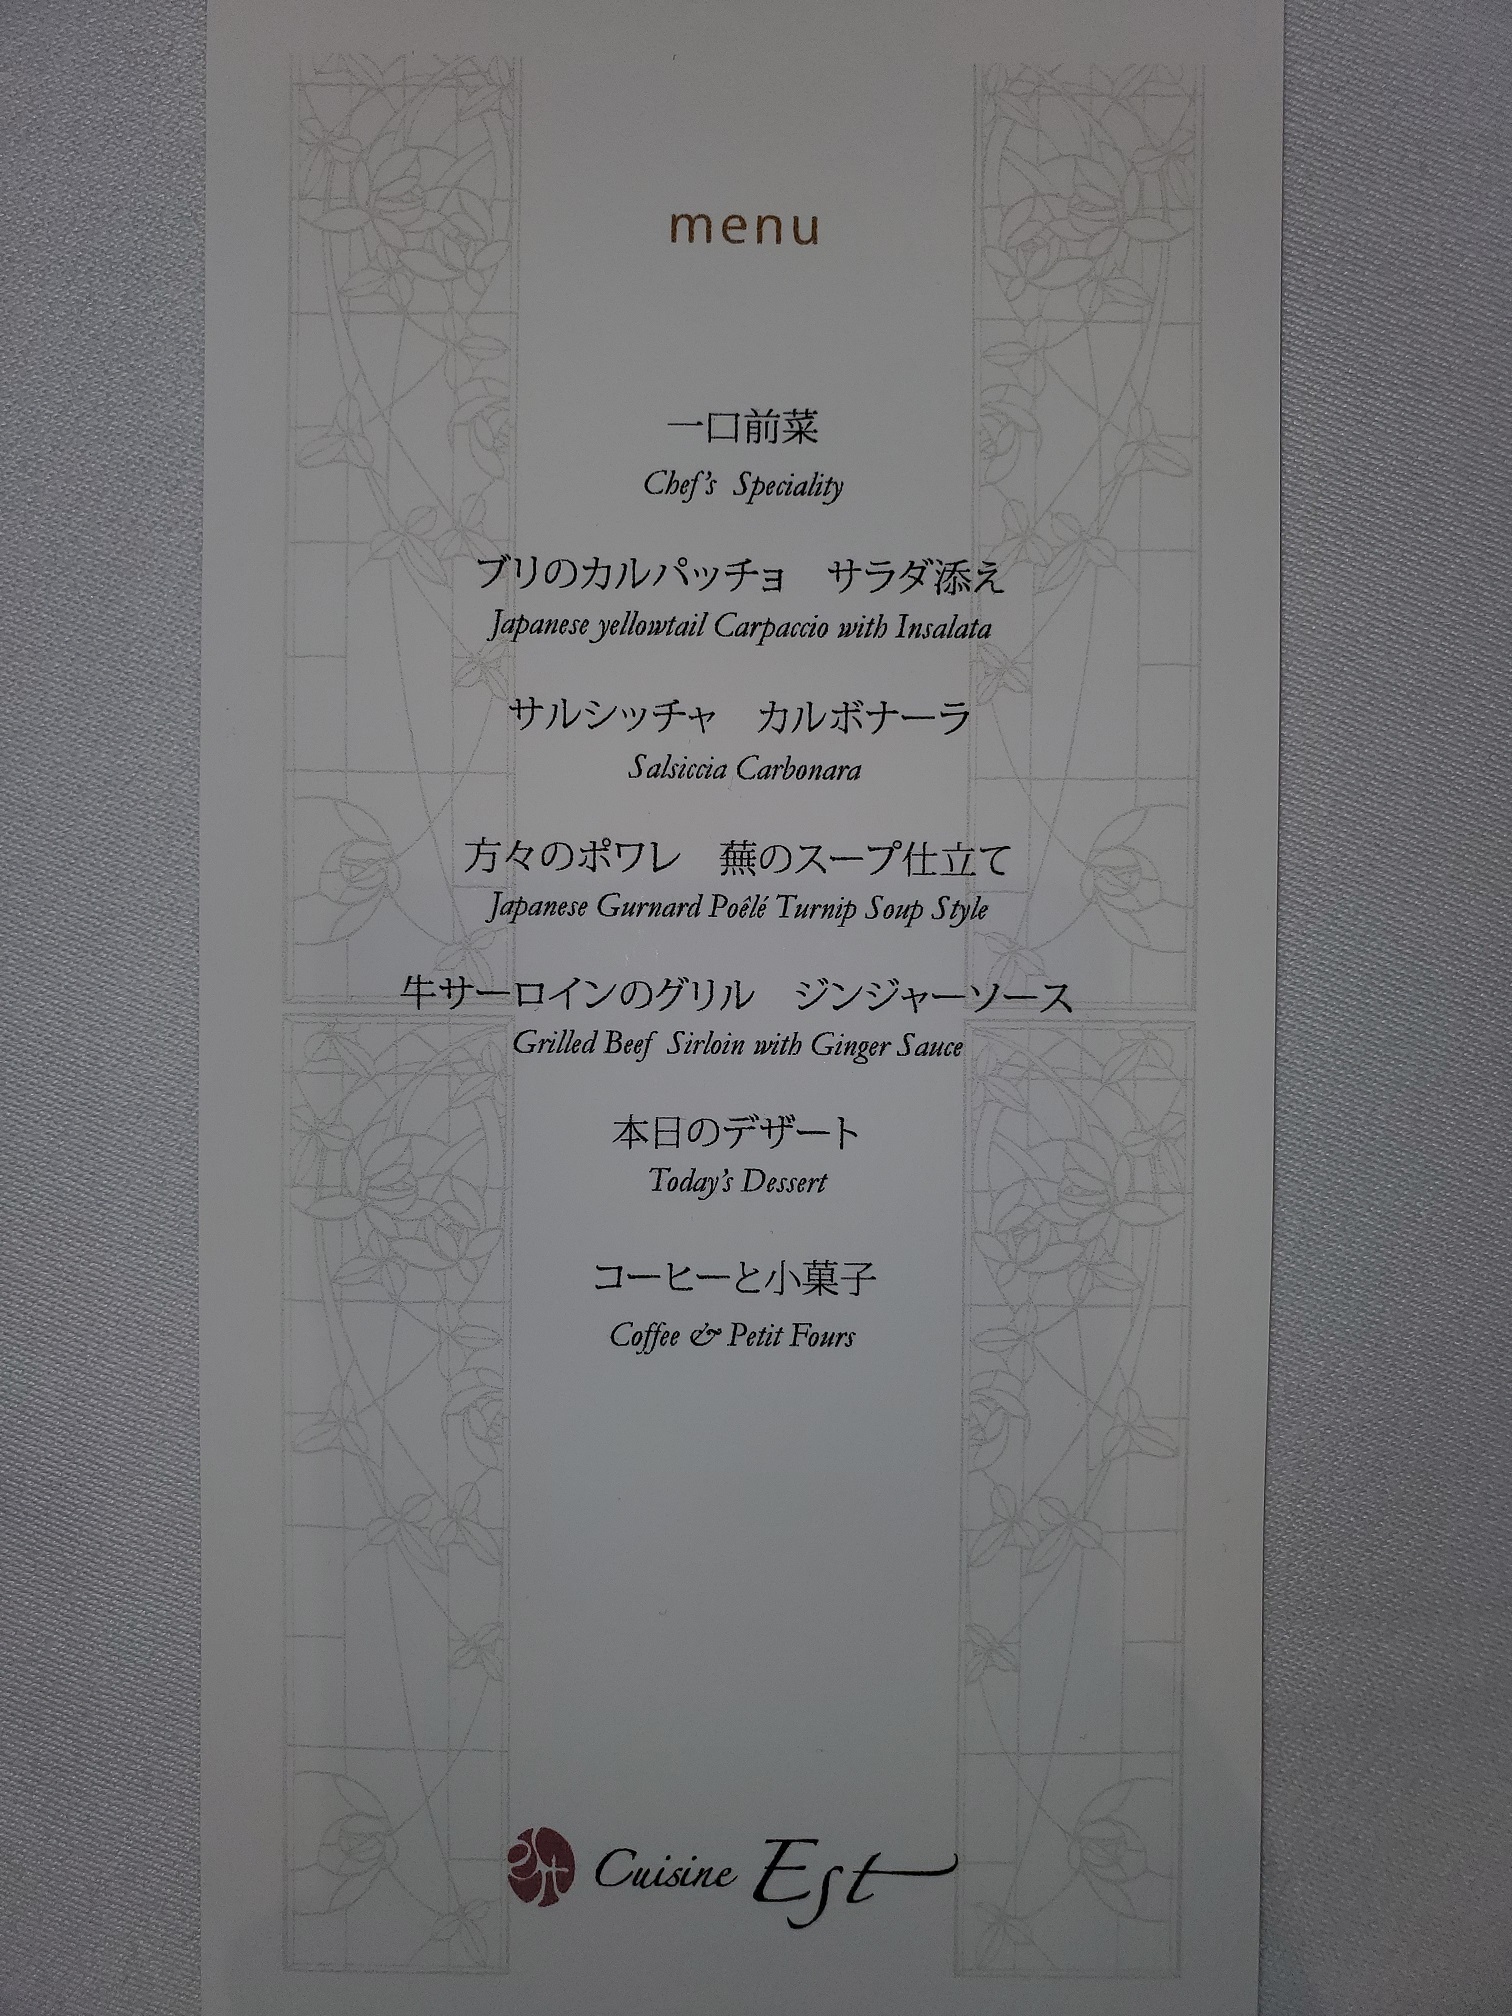 menu
一口前菜
Chef's Speciality
ブリのカルパッチョ　サラダ添え
Japanese yellowtail Carpaccio with Insalata
サルシッチャ　カルボナーラ
Salsiccia Carbonara
方々のポワレ　蕪のスープ仕立て
Japanese Gurnard Poêlé Turnip Soup Style
牛サーロインのグリル　ジンジャーソース
Grilled Beef Sirloin with Ginger Sauce
本日のデザート
Today's Dessert
コーヒーと小菓子
Coffee & Petit Fours
Cuisine Est